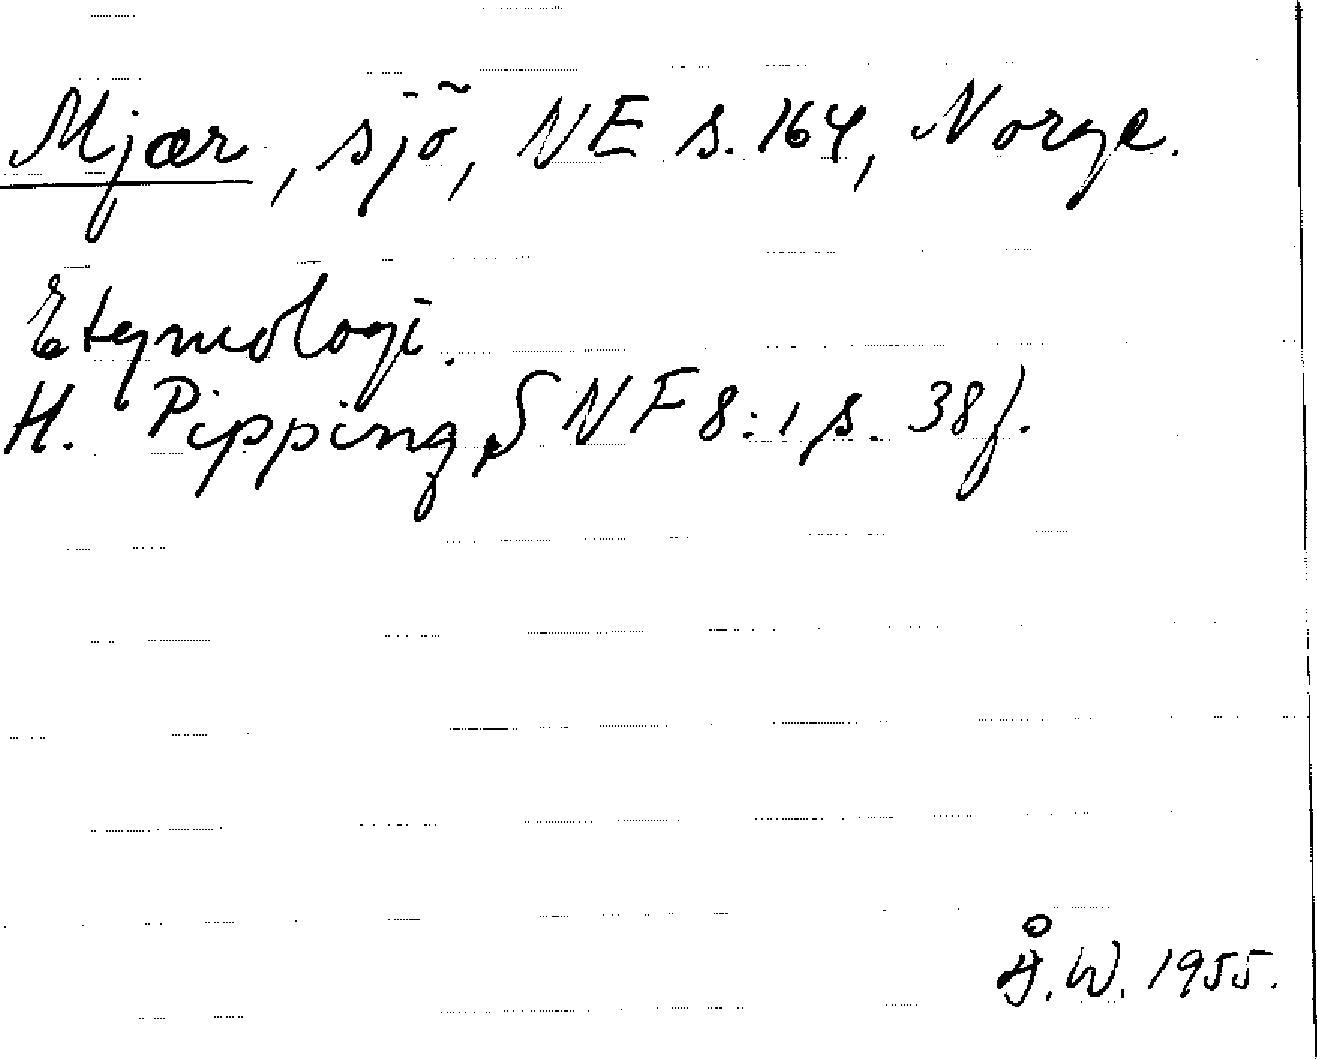 Mjær, sjö, NE s. 164, Norge.
Etymologi.
H. Pipping, SNF 8:1 s. 38f.
Å.W. 1955.